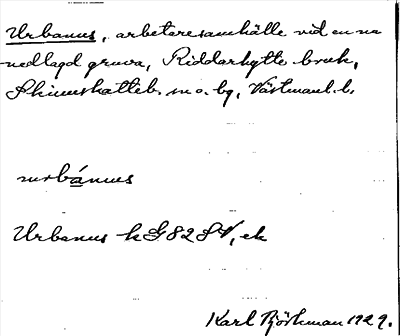 Urbanus, arbetaresamhälle vid en nu
nedlagd gruva, Riddarhytte bruk,
Skinnskatteb. sn o. bg, Västmanl. l.
urbánus
Urbanus kG 82 SV, ek
Karl Björkman 1929.